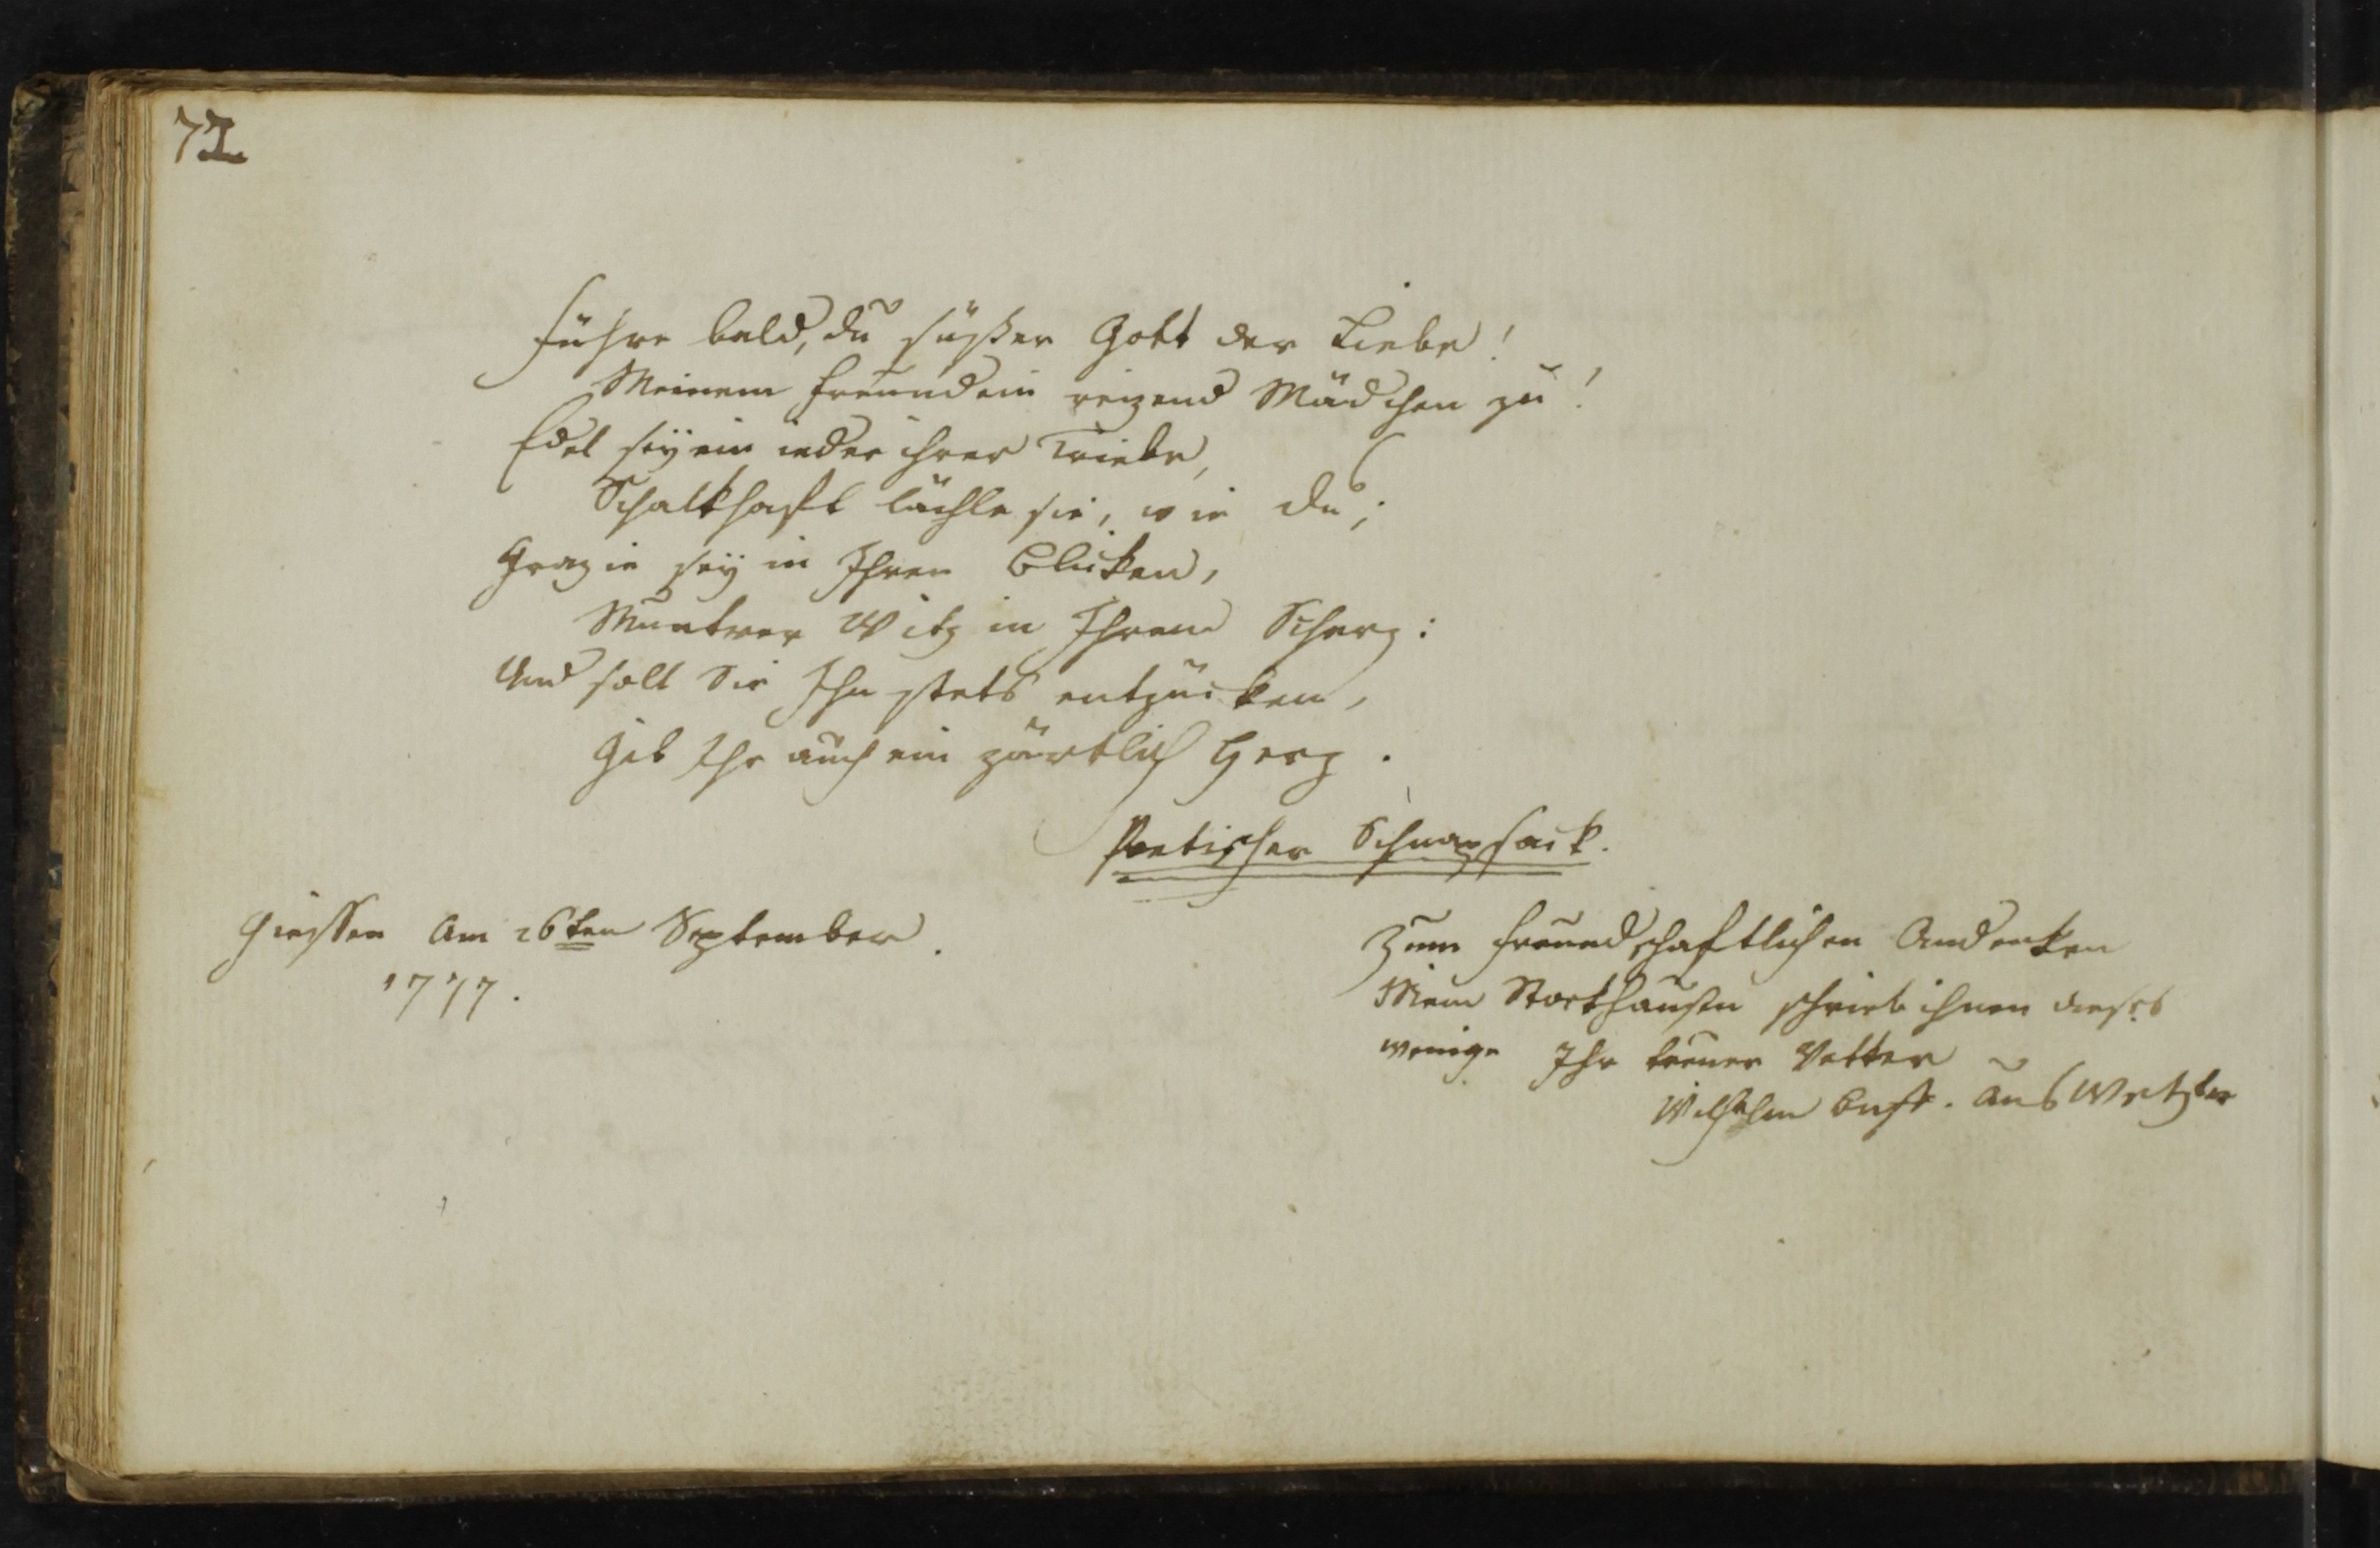 72
Führe bald, du süßer Gott der Liebe!
Meinem Freund ein reizend Mädchen zu!
Edel sey ein ieder ihrer Triebe,
Schalkhaft lächle sie, wie du;
Grazie sey in Ihren Blicken,
Muntrer Witz in Ihrem Scherz:
Und soll Sie Ihn stets entzücken,
Gib Ihr auch ein zärtlich Herz.
Poetischer Schnapsack.
Giessen am 26ten September.
1777.
Zum freundschaftlichen Andenken
Mein Stockhausen schrieb ihnen dieses
wenige Ihr treuer Vetter
Wilhelm Buff. aus Wetzlar